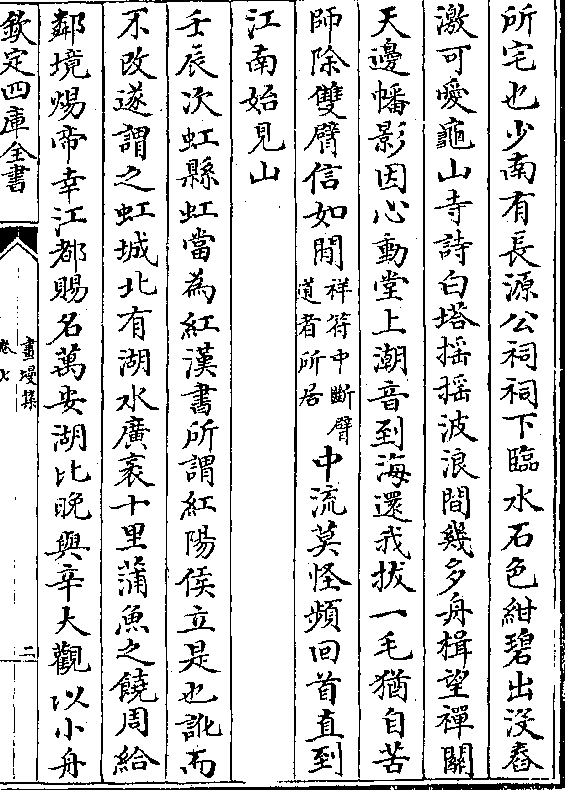 所宅也少南有長源公祠祠下臨水石色紺碧出沒舂
激可愛龜山寺詩白塔揺揺波浪間幾多舟楫望禪關
天邊幡影因心動堂上潮音到海還我拔一毛猶自苦
師除雙臂信如閒祥符中斷臂道者所居中流莫怪頻回首直到
江南始見山
壬辰次虹縣虹當為紅漢書所謂紅陽侯立是也訛而
不改遂謂之虹城北有湖水廣袤十里蒲魚之饒周給
鄰境煬帝幸江都賜名萬安湖比晚與辛大觀以小舟
欽定四庫全書
畫墁集
卷七
二